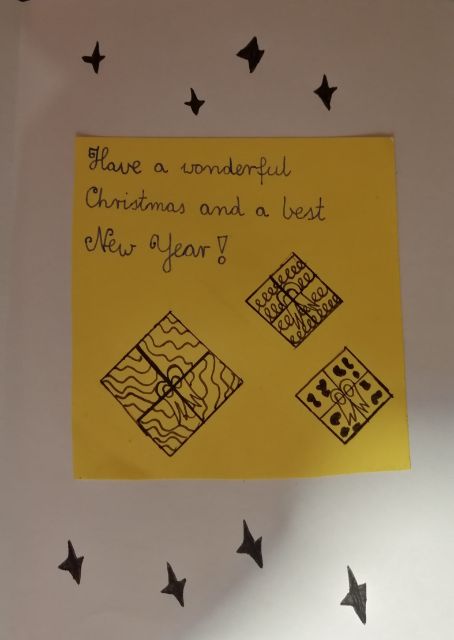 Have a wonderful
Christmas and a best
New Year!